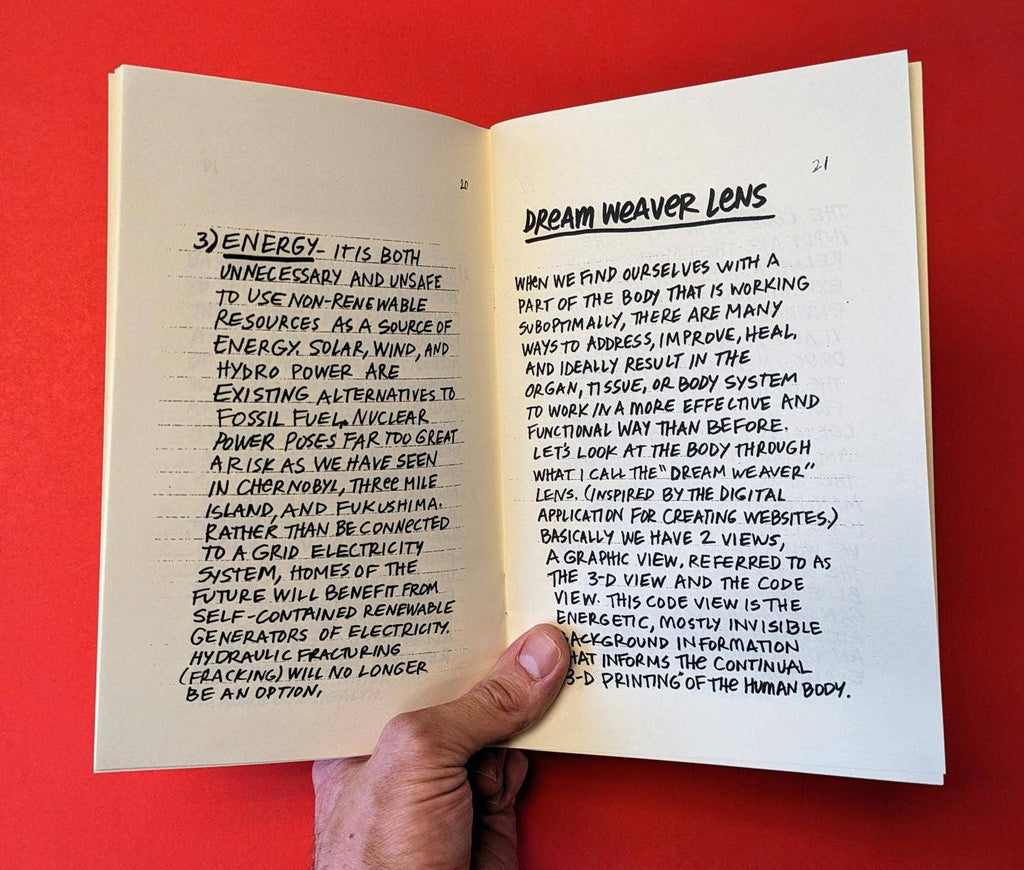 20
3) ENERGY- IT IS BOTH
UNNECESSARY AND UNSAFE
TO USE NON-RENEWABLE
RESOURCES AS A SOURCE OF
ENERGY. SOLAR, WIND, AND
HYDRO POWER ARE
EXISTING ALTERNATIVES TO
FOSSIL FUEL. NUCLEAR
POWER POSES FAR TOO GREAT
A RISK AS WE HAVE SEEN
IN CHERNOBYL, THREE MILE
ISLAND, AND FUKUSHIMA.
RATHER THAN BE CONNECTED
TO A GRID ELECTRICITY
SYSTEM, HOMES OF THE
FUTURE WILL BENEFIT FROM
SELF-CONTAINED RENEWABLE
GENERATORS OF ELECTRICITY.
HYDRAULIC FRACTURING
(FRACKING) WILL NO LONGER
BE AN OPTION.
21
DREAM WEAVER LENS
WHEN WE FIND OURSELVES WITH A
PART OF THE BODY THAT IS WORKING
SUBOPTIMALLY, THERE ARE MANY
WAYS TO ADDRESS, IMPROVE, HEAL,
AND IDEALLY RESULT IN THE
ORGAN, TISSUE, OR BODY SYSTEM
TO WORK IN A MORE EFFECTIVE AND
FUNCTIONAL WAY THAN BEFORE.
LET'S LOOK AT THE BODY THROUGH
WHAT I CALL THE "DREAM WEAVER"
LENS. (INSPIRED BY THE DIGITAL
APPLICATION FOR CREATING WEBSITES.)
BASICALLY WE HAVE 2 VIEWS,
A GRAPHIC VIEW, REFERRED TO AS
THE 3-D VIEW AND THE CODE
VIEW. THIS CODE VIEW IS THE
ENERGETIC, MOSTLY INVISIBLE
ACKGROUND INFORMATION
HAT INFORMS THE CONTINUAL
3-D PRINTING" OF THE HUMAN BODY.